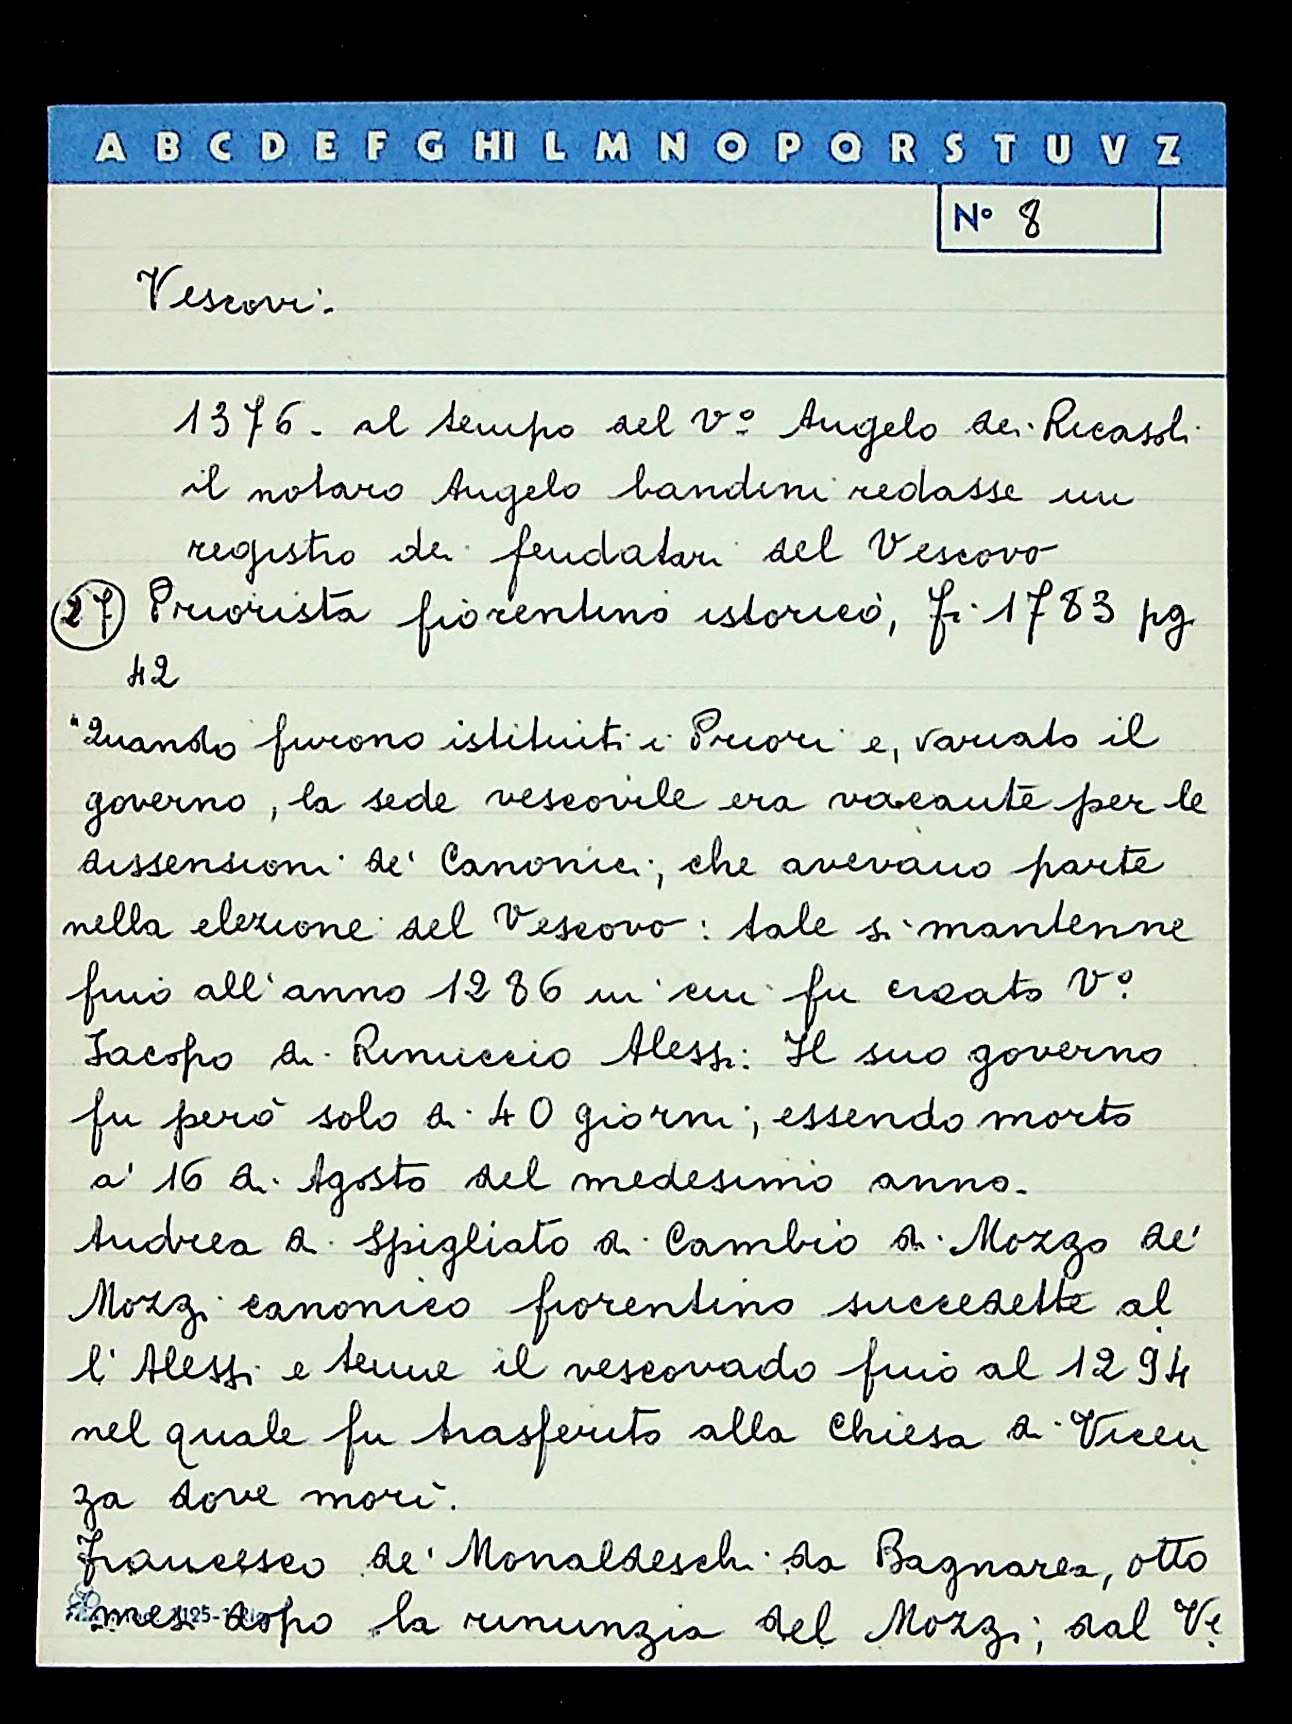 A B C D E F G HI L M N O P Q R S T U V Z
N° 8
Vescovi.
1376. al tempo del Vº Angelo dei Ricasoli
il notaro Angelo bandini redasse un
registro dei feudatari del Vescovo
27 Priorista fiorentino istorico, Fi 1783 pg.
42
"Quando furono istituiti i Priori e, variato il
governo, la sede vescovile era vacante per le
dissensioni de' Canonici, che avevano parte
nella elezione del Vescovo: tale si mantenne
fino all'anno 1286 in cui fu creato Vº
Iacopo di Rinuccio Alessi. Il suo governo
fu però solo di 40 giorni, essendo morto
a' 16 di Agosto del medesimo anno.
Andrea di Spigliato di Cambio di Mozzo de'
Mozzi canonico fiorentino succedette al
l'Alessi e tenne il vescovado fino al 1294
nel quale fu trasferito alla Chiesa di Vicen
za dove morì.
Francesco de' Monaldeschi da Bagnarea, otto
mesi dopo la rinunzia del Mozzi, dal Ve